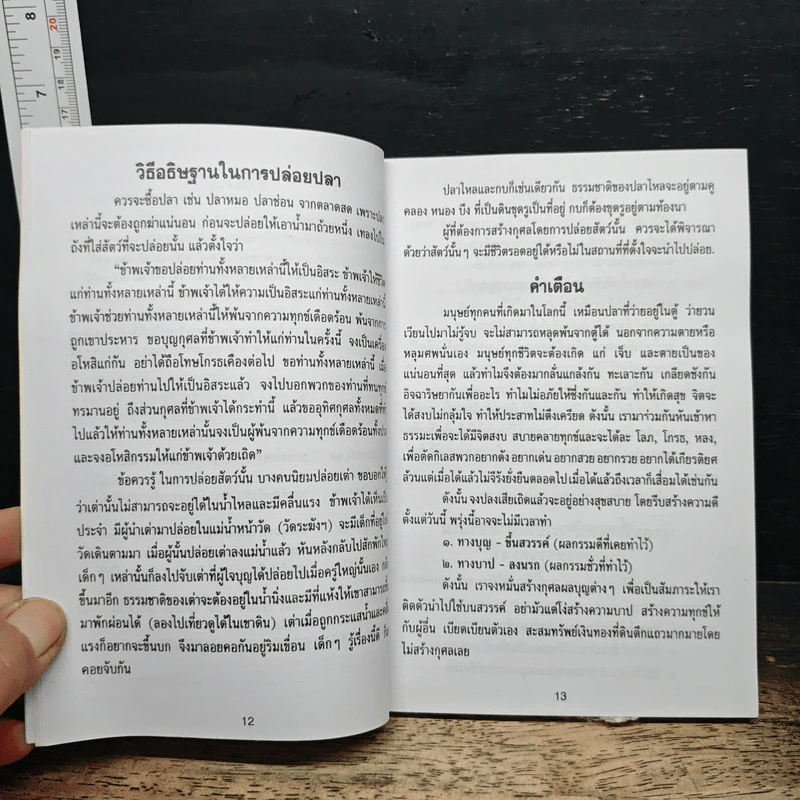 8
7
20
19
18
17
วิธีอธิษฐานในการปล่อยปลา
ควรจะซื้อปลา เช่น ปลาหมอ ปลาช่อน จากตลาดสด เพราะปลา
เหล่านี้จะต้องถูกฆ่าแน่นอน ก่อนจะปล่อยให้เอาน้ำมาถ้วยหนึ่ง เทลงไปใน
ถังที่ใส่สัตว์ที่จะปล่อยนั้น แล้วตั้งใจว่า
“ข้าพเจ้าขอปล่อยท่านทั้งหลายเหล่านี้ให้เป็นอิสระ ข้าพเจ้าให้ชีวิต
แก่ท่านทั้งหลายเหล่านี้ ข้าพเจ้าได้ให้ความเป็นอิสระแก่ท่านทั้งหลายเหล่านี้
ข้าพเจ้าช่วยท่านทั้งหลายเหล่านี้ให้พ้นจากความทุกข์เดือดร้อน พ้นจากการ
ถูกเขาประหาร ขอบุญกุศลที่ข้าพเจ้าทำให้แก่ท่านในครั้งนี้ จงเป็นเครื่อง
อโหสิแก่กัน อย่าได้ถือโทษโกรธเคืองต่อไป ขอท่านทั้งหลายเหล่านี้ เมื่อ
ข้าพเจ้าปล่อยท่านไปให้เป็นอิสระแล้ว จงไปบอกพวกของท่านที่ทนทุกข์
ทรมานอยู่ ถึงส่วนกุศลที่ข้าพเจ้าได้กระทำนี้ แล้วขออุทิศกุศลทั้งหมดที่ทำ
ไปแล้วให้ท่านทั้งหลายเหล่านั้นจงเป็นผู้พ้นจากความทุกข์เดือดร้อนทั้งปวง
และจงอโหสิกรรมให้แก่ข้าพเจ้าด้วยเถิด”
ข้อควรรู้ ในการปล่อยสัตว์นั้น บางคนนิยมปล่อยเต่า ขอบอกให้รู้
ว่าเต่านั้นไม่สามารถจะอยู่ได้ในน้ำไหลและมีคลื่นแรง ข้าพเจ้าได้เห็นเป็น
ประจำ มีผู้นำเต่ามาปล่อยในแม่น้ำหน้าวัด (วัดระฆังฯ) จะมีเด็กที่อยู่ใน
วัดเดินตามมา เมื่อผู้นั้นปล่อยเต่าลงแม่น้ำแล้ว หันหลังกลับไปสักพักใหญ่
เด็กๆ เหล่านั้นก็ลงไปจับเต่าที่ผู้ใจบุญได้ปล่อยไปเมื่อครู่ใหญ่นั้นเอง กลับ
ขึ้นมาอีก ธรรมชาติของเต่าจะต้องอยู่ในน้ำนิ่งและมีที่แห้งให้เขาสามารถขึ้น
มาพักผ่อนได้ (ลองไปเที่ยวดูได้ในเขาดิน) เต่าเมื่อถูกกระแสน้ำและคลื่น
แรงก็อยากจะขึ้นบก จึงมาลอยคอกันอยู่ริมเขื่อน เด็กๆ รู้เรื่องนี้ดี
คอยจับกัน
12
ปลาไหลและกบก็เช่นเดียวกัน ธรรมชาติของปลาไหลจะอยู่ตามคู
คลอง หนอง บึง ที่เป็นดินขุดรูเป็นที่อยู่ กบก็ต้องขุดรูอยู่ตามท้องนา
ผู้ที่ต้องการสร้างกุศลโดยการปล่อยสัตว์นั้น ควรจะได้พิจารณา
ด้วยว่าสัตว์นั้นๆ จะมีชีวิตรอดอยู่ได้หรือไม่ในสถานที่ที่ตั้งใจจะนำไปปล่อย.
คำเตือน
มนุษย์ทุกคนที่เกิดมาในโลกนี้ เหมือนปลาที่ว่ายอยู่ในตู้ ว่ายวน
เวียนไปมาไม่รู้จบ จะไม่สามารถหลุดพ้นจากตู้ได้ นอกจากความตายหรือ
หลุมศพนั่นเอง มนุษย์ทุกชีวิตจะต้องเกิด แก่ เจ็บ และตายเป็นของ
แน่นอนที่สุด แล้วทำไมจึงต้องมากลั่นแกล้งกัน ทะเลาะกัน เกลียดชังกัน
อิจฉาริษยากันเพื่ออะไร ทำไมไม่อภัยให้ซึ่งกันและกัน ทำให้เกิดสุข จิตจะ
ได้สงบไม่กลุ้มใจ ทำให้ประสาทไม่ตึงเครียด ดังนั้น เรามาร่วมกันหันเข้าหา
ธรรมะเพื่อจะได้มีจิตสงบ สบายคลายทุกข์และจะได้ละ โลภ, โกรธ, หลง,
เพื่อตัดกิเลสพวกอยากดัง อยากเด่น อยากสวย อยากรวย อยากได้เกียรติยศ
ล้วนแต่เมื่อได้แล้วไม่จีรังยั่งยืนตลอดไป เมื่อได้แล้วถึงเวลาก็เสื่อมได้เช่นกัน
ดังนั้น จงปลงเสียเถิดแล้วจะอยู่อย่างสุขสบาย โดยรีบสร้างความดี
ตั้งแต่วันนี้ พรุ่งนี้อาจจะไม่มีเวลาทำ
๑. ทางบุญ - ขึ้นสวรรค์ (ผลกรรมดีที่เคยทำไว้)
๒. ทางบาป - ลงนรก (ผลกรรมชั่วที่ทำไว้)
ดังนั้น เราจงหมั่นสร้างกุศลผลบุญต่างๆ เพื่อเป็นสัมภาระให้เรา
ติดตัวนำไปใช้บนสวรรค์ อย่ามัวแต่โง่สร้างความบาป สร้างความทุกข์ให้
กับผู้อื่น เบียดเบียนตัวเอง สะสมทรัพย์เงินทองที่ดินตึกแถวมากมายโดย
ไม่สร้างกุศลเลย
13